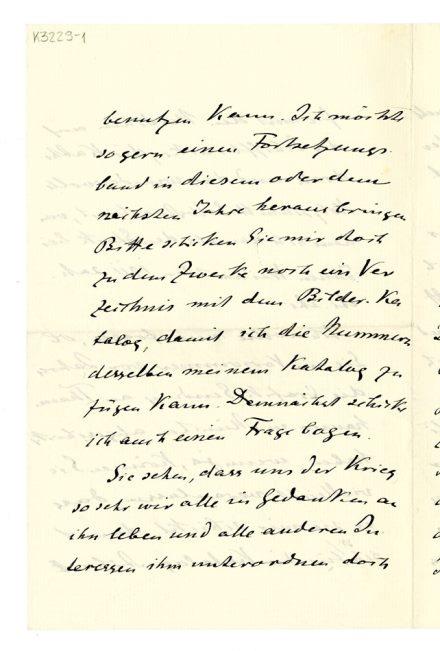 K3223-1
benutzen kann. Ich möchte
so gern einen Fortsetzungs
band in diesem oder dem
nächsten Jahre herausbringen
Bitte schicken Sie mir doch
zu dem Zwecke noch ein Ver
zeichnis mit dem Bilder-Ka
talog, damit ich die Nummern
desselben meinem Katalog zu
fügen kann. Demnächst schicke
ich auch einen Fragebogen.
Sie sehen, dass uns der Krieg
so sehr wir alle in Gedanken an
ihn leben und alle anderen In
teressen ihm unterordnen doch